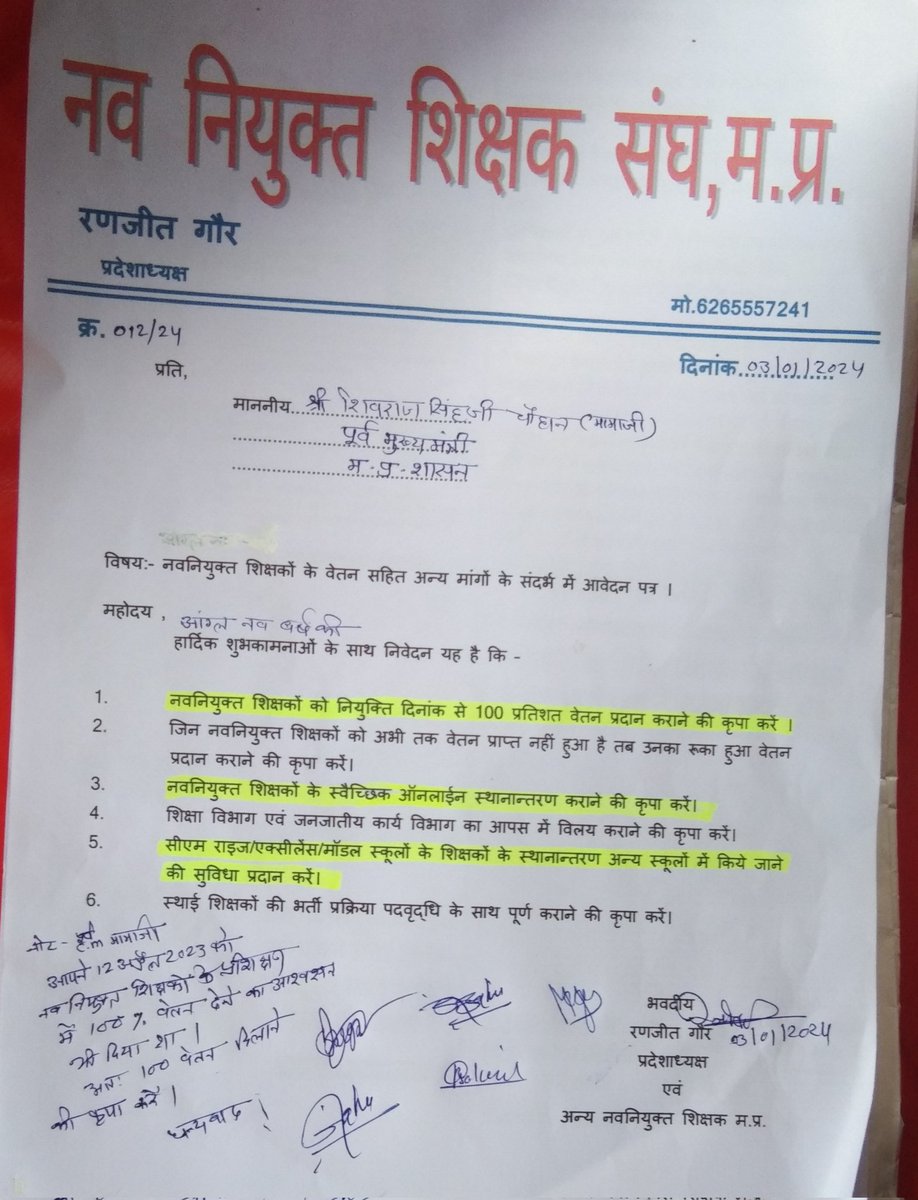 नव नियुक्त शिक्षक संघ,म.प्र.
रणजीत गौर
प्रदेशाध्यक्ष
मो.6265557241
क्र. 012/24
दिनांक..03/01/2024
प्रति,
माननीय...श्री शिवराज सिंह जी चौहान (मामाजी)
पूर्व मुख्यमंत्री
म.प्र. शासन
विषय:- नवनियुक्त शिक्षकों के वेतन सहित अन्य मांगों के संदर्भ में आवेदन पत्र ।
महोदय , आंग्ल नव वर्ष की
हार्दिक शुभकामनाओं के साथ निवेदन यह है कि -
1. नवनियुक्त शिक्षकों को नियुक्ति दिनांक से 100 प्रतिशत वेतन प्रदान कराने की कृपा करें ।
2. जिन नवनियुक्त शिक्षकों को अभी तक वेतन प्राप्त नहीं हुआ है तब उनका रूका हुआ वेतन
प्रदान कराने की कृपा करें।
3. नवनियुक्त शिक्षकों के स्वैच्छिक ऑनलाईन स्थानान्तरण कराने की कृपा करें।
4. शिक्षा विभाग एवं जनजातीय कार्य विभाग का आपस में विलय कराने की कृपा करें।
5. सीएम राइज/एक्सीलेंस/मॉडल स्कूलों के शिक्षकों के स्थानान्तरण अन्य स्कूलों में किये जाने
की सुविधा प्रदान करें।
6. स्थाई शिक्षकों की भर्ती प्रक्रिया पदवृद्धि के साथ पूर्ण कराने की कृपा करें।
नोट - मामाजी
आपने 12 अप्रैल 2023 को
नव नियुक्त शिक्षकों के प्रशिक्षण
में 100 % वेतन देने का आश्वासन
भी दिया था ।
अतः 100 वेतन दिलाने
की कृपा करें ।
धन्यवाद !
भवदीय
रणजीत गौर 03/01/2024
प्रदेशाध्यक्ष
एवं
अन्य नवनियुक्त शिक्षक म.प्र.